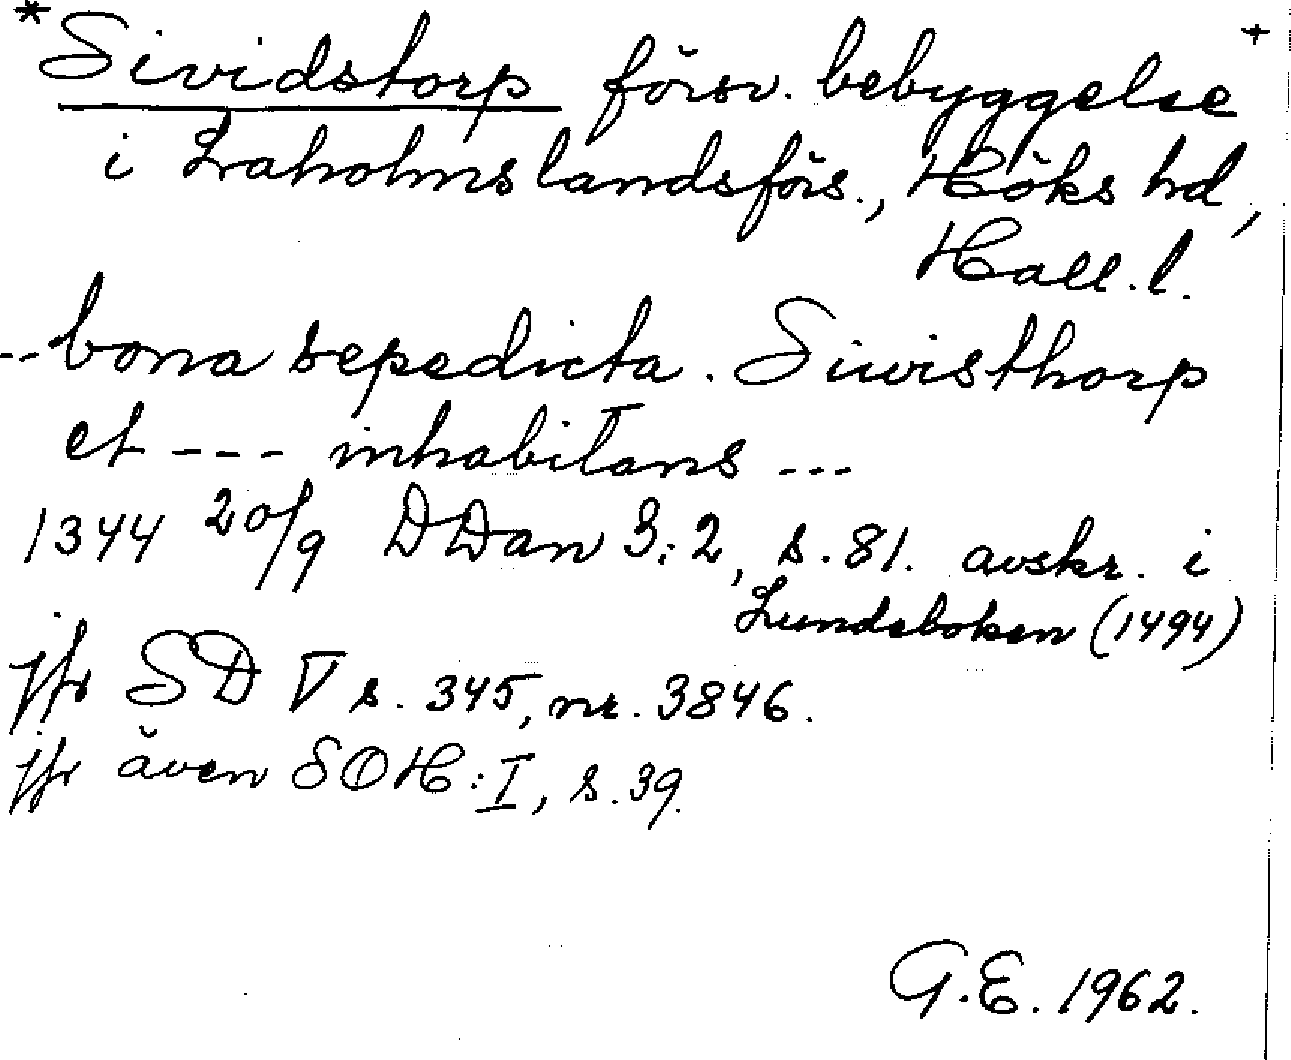 * Sividstorp försv. bebyggelse +
i Laholms landsförs., Höks hd,
Hall. l.
-- bona sepedicta. Siwisthorp
et --- inhabitans ---
1344 20/9 DDan 3:2, s. 81. avskr. i
Lundeboken (1494)
jfr SD V s. 345, nr. 3846.
jfr även SOH: I, s. 39.
G.E. 1962.